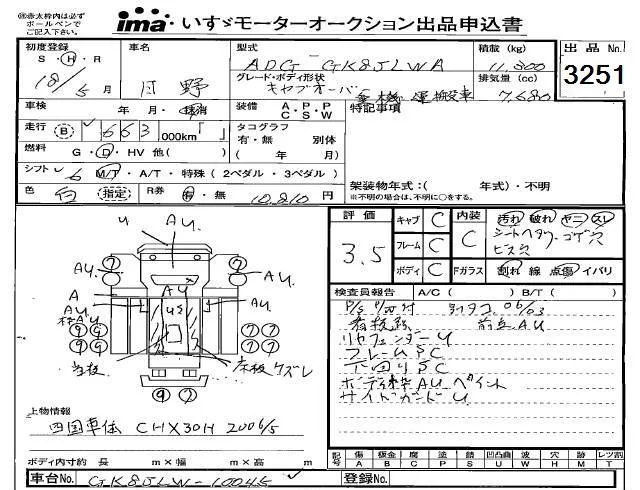 ㊟赤太枠内は必ず
ボールペンで
ご記入下さい。
ima いすゞモーターオークション出品申込書
初度登録 車名 型式 積載(kg) 出品No.
S・H・R 18/5月 日野 ADG-GK8JLWA 11,300 3251
グレード・ボディ形状 排気量(cc)
キャブオーバ 重機運搬車 7,680
車検 年・月・抹消 装備 A・P・P C・S・W 特記事項
走行 B 663 000km「 」 タコグラフ
有・無 別体
燃料 G・D・HV 他( ) ( 年 月)
シフト 6 M/T・A/T・特殊(2ペダル・3ペダル)
色 白 指定 R券 有・無 10,810円
架装物年式:( 年式)・不明
※不明の場合は、不明に○をする。
評価 キャブ C 内装 汚れ 破れ ヤニ スレ
3.5 フレーム C C シートヘタリ コゲ穴
ビス穴
ボディ C Fガラス 割れ 線 点傷 イバリ
検査員報告 A/C( ) B/T( )
06/03
リヤフェンダーU
フレームSC
下回りSC
ボディ枠AU ペイント
サイドガードU
U AU
AU AU
A AU
AU
床板ケズレ
上物情報
四国車体 CHX30H 2006/5
ボディ内寸約 長 m×幅 m×高 m
記号 傷 板金 腐 塗 錆 凹凸凹 波 穴 跡 レツ割
A B C P S U W H M T
車台No. GK8JLW-10045 登録No.